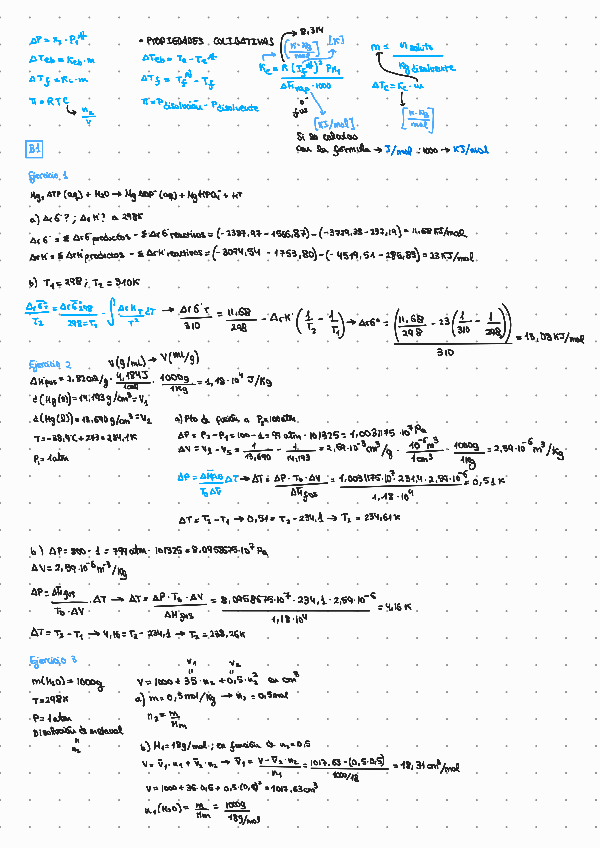 ΔP = x₂ · P₁*
ΔTeb = Keb · m
ΔTf = Kc · m
Π = RTC
n₂
V
• PROPIEDADES COLIGATIVAS
ΔTeb = Te - Te*
ΔTf = Tf* - Tf
Π = Pdisolución - Pdisolvente
8,314
[K·Kg/mol]
[K]
Kc = R (Tf*)² PM₁
ΔH · 1000
fus
[KJ/mol]
Si se calcula
con la fórmula → J/mol : 1000 → KJ/mol
m = n soluto
Kg disolvente
ΔTc = Kc · m
[K·Kg/mol]
B1
Ejercicio 1
Mg, ATP (aq) + H₂O → Mg ADP⁻ (aq) + MgHPO₄ + H⁺
a) ΔrG°? ; ΔrH°? a 298K
ΔrG° = Σ ΔrG° productos - Σ ΔrG° reactivos = (-2387,97 - 1566,87) - (-3729,38 - 237,19) = 11,68 KJ/mol
ΔrH° = Σ ΔrH° productos - Σ ΔrH° reactivos = (-3074,54 - 1753,80) - (-4519,51 - 285,83) = 23 KJ/mol
b) T₁ = 298 ; T₂ = 310K
Ejercicio 2
V(g/mL) → V(mL/g)
1000g
1Kg
= 1,18·10⁴ J/Kg
d (Hg(s)) = 14,193 g/cm³ = V₁
d (Hg(l)) = 13,690 g/cm³ = V₂
T = -38,9°C + 273 = 234,1K
P₁ = 1 atm
a) Pto de fusión a P₂ = 100 atm.
ΔP = P₂ - P₁ = 100 - 1 = 99 atm · 101325 = 1,0031175 · 10⁷ Pa
ΔV = V₂ - V₁ = 1/13,690 - 1/14,193 = 2,59·10⁻⁶ cm³/g · 10⁻⁶m³/1cm³ · 1000g/1Kg = 2,59·10⁻⁶ m³/Kg
→ ΔT = ΔP · T₀ · ΔV / ΔHfus = 1,0031175·10⁷ · 234,1 · 2,59·10⁻⁶ / 1,18·10⁴ = 0,51 K
ΔT = T₂ - T₁ → 0,51 = T₂ - 234,1 → T₂ = 234,61K
b) ΔP = 800 - 1 = 799 atm · 101325 = 8,0958675·10⁷ Pa
ΔV = 2,59·10⁻⁶ m³/Kg
ΔP = ΔHfus / T₀ · ΔV · ΔT → ΔT = ΔP · T₀ · ΔV / ΔHfus = 8,0958675·10⁷ · 234,1 · 2,59·10⁻⁶ / 1,18·10⁴ = 4,16 K
ΔT = T₂ - T₁ → 4,16 = T₂ - 234,1 → T₂ = 238,26K
Ejercicio 3
m(H₂O) = 1000g
T = 298K
P = 1 atm
Disolución de metanol
n₂
V = 1000 + 35·n₂ + 0,5·n₂² en cm³
a) m = 0,5 mol/Kg → n₂ = 0,5 mol
n₂ = m/Mm
b) M₁ = 18g/mol ; en función de n₂ = 0,5
V = V̄₁ · n₁ + V̄₂ · n₂ → V̄₁ = V - V̄₂ · n₂ / n₁ = 1017,63 - (0,5·0,5) / 1000/18 = 18,31 cm³/mol
V = 1000 + 35·0,5 + 0,5·(0,5)² = 1017,63 cm³
n₁ (H₂O) = m/Mm = 1000g / 18g/mol